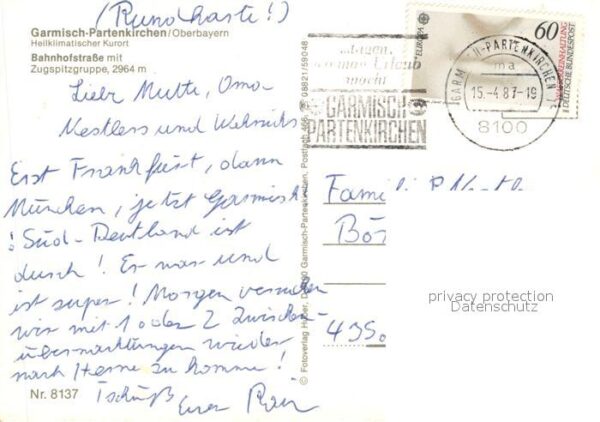 (Rundkarte!)
Garmisch-Partenkirchen/Oberbayern
Heilklimatischer Kurort
Bahnhofstraße mit
Zugspitzgruppe, 2964 m
Liebe Mutter, Oma
Kestlers und
Erst Frankfurt, dann
München, jetzt Garmisch
! Süd-Deutland ist
durch! Es war und
ist super! Morgen versuchen
wir mit 1 oder 2 Zwischen-
übernachtungen wieder
nach Herne zu komme!
Tschüß
Euer
Nr. 8137
© Fotoverlag Huber, Garmisch-Partenkirchen, Postfach 466, ☎ 08821/59048
Urlaub
macht
GARMISCH
PARTENKIRCHEN
EUROPA
60
DEUTSCHE BUNDESPOST
GARMISCH-PARTENKIRCHEN 1
ma
15.-4.87-19
8100
Famili
Bör
4350
privacy protection
Datenschutz